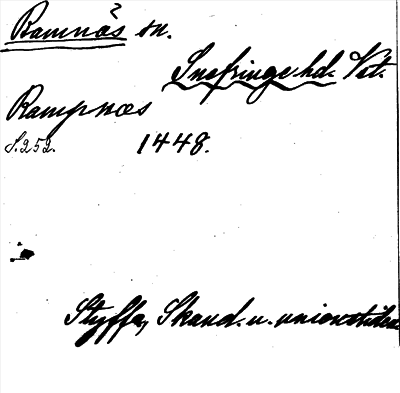 Ramnäs 2 sn.
Snefringe hd. Vst.
Rampnæs
S. 252. 1448.
Styffe, Skand. u. unionstiden